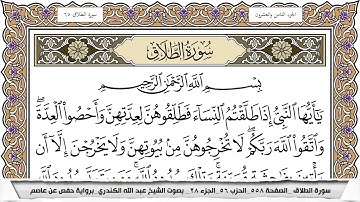 الجزء الثامن والعشرون
سورة الطلاق ٦٥
سُورَةُ الطَّلَاقِ
بِسْمِ اللَّهِ الرَّحْمَٰنِ الرَّحِيمِ
يَٰٓأَيُّهَا ٱلنَّبِىُّ إِذَا طَلَّقْتُمُ ٱلنِّسَآءَ فَطَلِّقُوهُنَّ لِعِدَّتِهِنَّ وَأَحْصُواْ ٱلْعِدَّةَ
وَٱتَّقُواْ ٱللَّهَ رَبَّكُمْ لَا تُخْرِجُوهُنَّ مِنۢ بُيُوتِهِنَّ وَلَا يَخْرُجْنَ إِلَّآ أَن
سورة الطلاق _ الصفحة ٥٥٨ _ الحزب ٥٦ _ الجزء ٢٨ _ بصوت الشيخ عبد الله الكندري _ برواية حفص عن عاصم